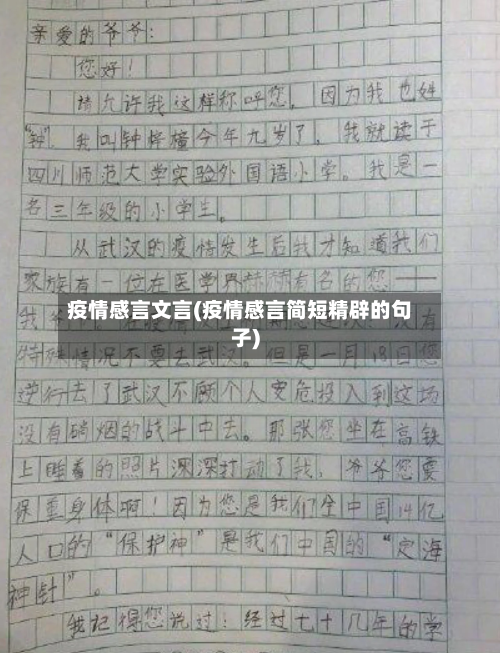 亲爱的爷爷:
您好!
请允许我这样称呼您,因为我也姓
“钟”,我叫钟梓橦今年九岁了,我就读于
四川师范大学实验外国语小学。我是一
名三年级的小学生。
从武汉的疫情发生后我才知道我们
家族有一位在医学界赫赫有名的您——
疫情感言文言(疫情感言简短精辟的句
子)
特殊情况不要去武汉。但是一月18日您
逆行去了武汉不顾个人安危投入到这场
没有硝烟的战斗中去。那张您坐在高铁
上睡着的照片深深打动了我,爷爷您要
保重身体啊!因为您是我们全中国14亿
人口的“保护神”是我们中国的“定海
神针”。
我记得您说过:经过七十几年的学